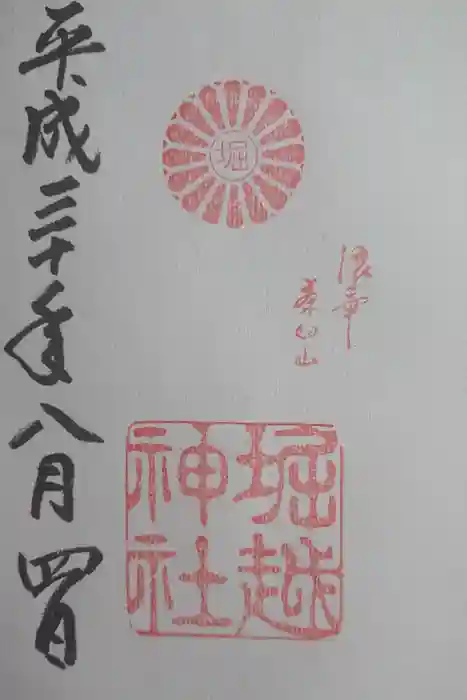 堀
浪華
茶臼山
堀越
神社
平成三十年八月四日